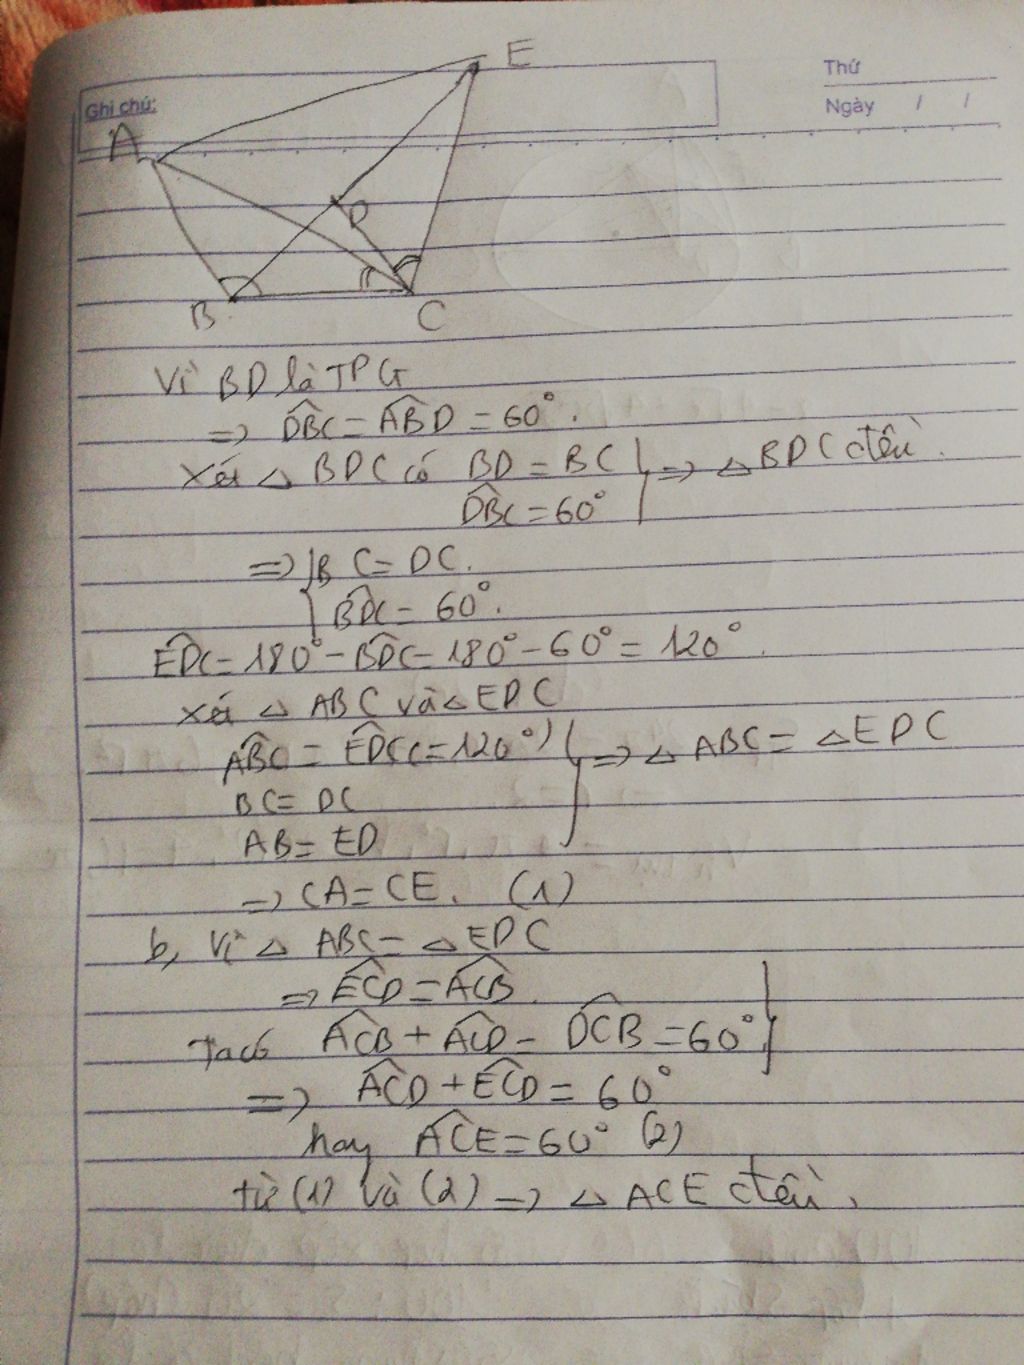 E
Thứ
Ghi chú:
Ngày / /
A
D
B
C
Vì BD là TPG
=> DBC = ABD = 60°.
Xét △ BDC có BD = BC => △ BDC đều.
DBC = 60°
=> BC = DC.
BDC = 60°.
EDC = 180° - BDC = 180° - 60° = 120°.
Xét △ ABC và △ EDC
ABC = EDC (= 120°) => △ ABC = △ EDC
BC = DC
AB = ED
=> CA = CE. (1)
b, Vì △ ABC = △ EDC
=> ECD = ACB.
Ta có ACB + ACD = DCB = 60°
=> ACD + ECD = 60°
hay ACE = 60° (2)
từ (1) và (2) => △ ACE đều.